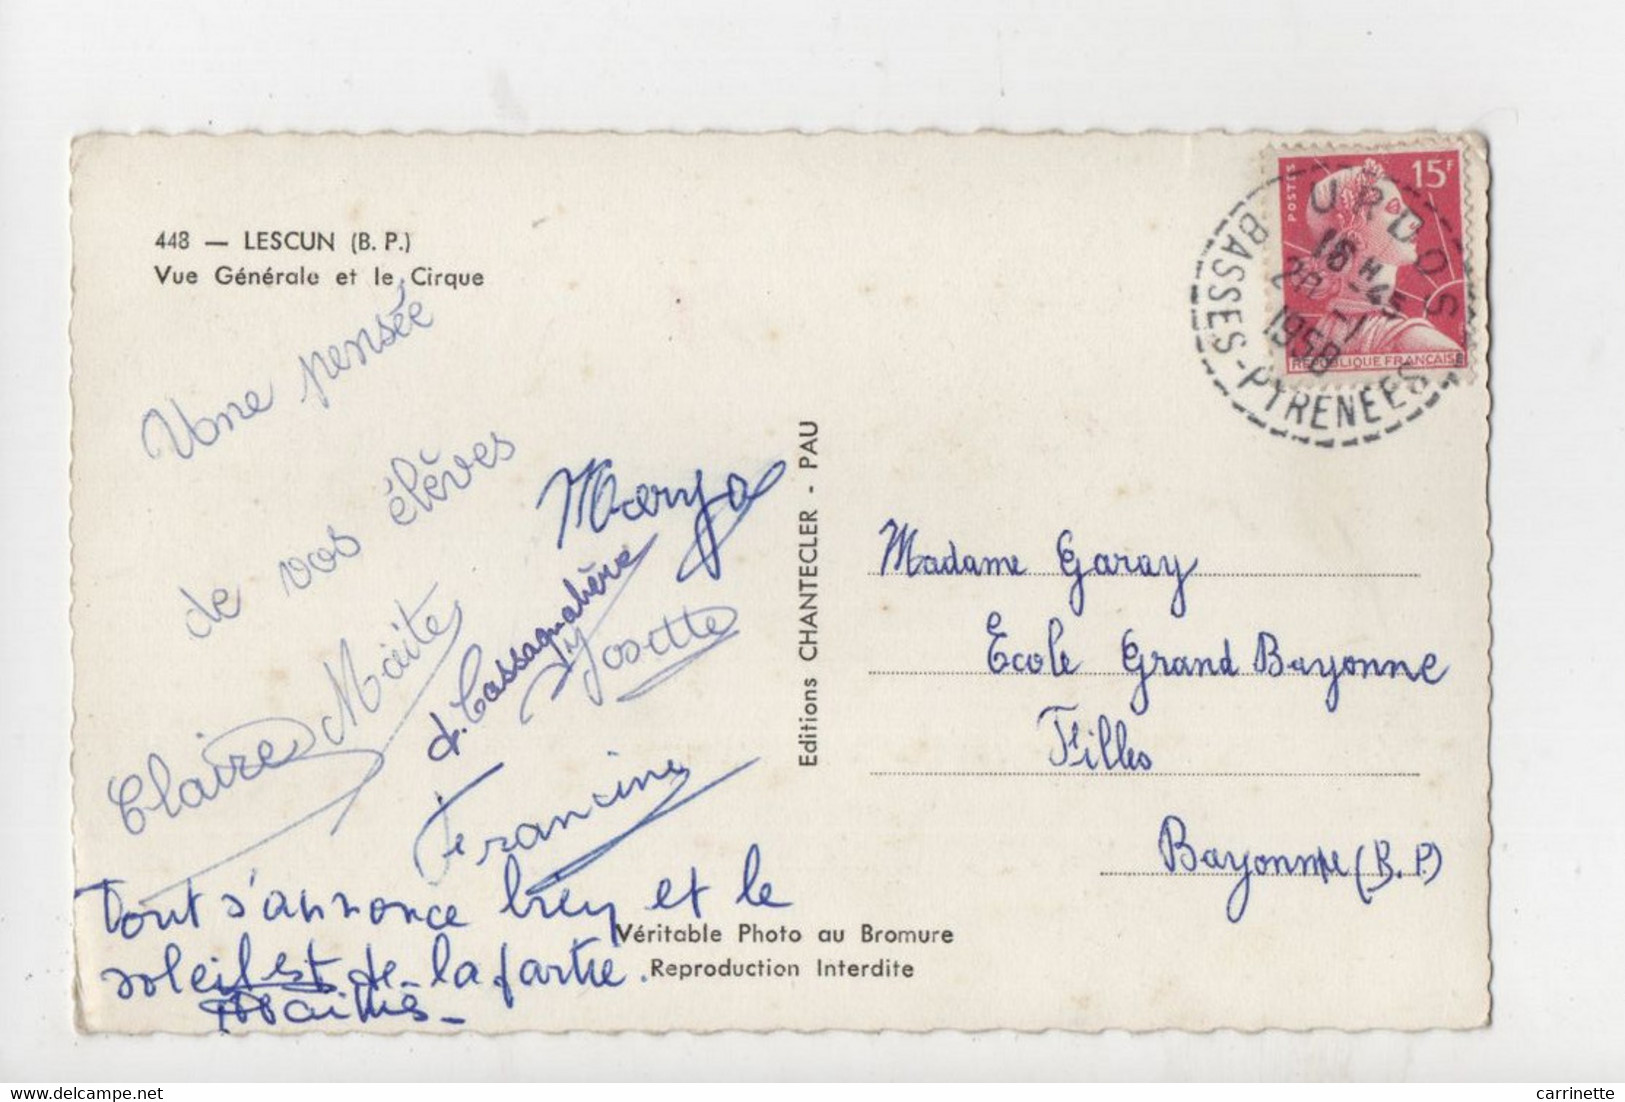 448 — LESCUN (B. P.)
Vue Générale et le Cirque
Une pensée
de vos élèves
Maryse
Maïte
d. Cassagnabère
Josette
Claire
Francine
Tout s'annonce bien et le
soleil est de la partie.
Editions CHANTECLER - PAU
Véritable Photo au Bromure
Reproduction Interdite
POSTES
15F
REPUBLIQUE FRANCAISE
URDOS
16 H 45
20 -1
1958
BASSES-PYRENEES
Madame Garay
Ecole Grand Bayonne
Filles
Bayonne (B.P.)
carrinette